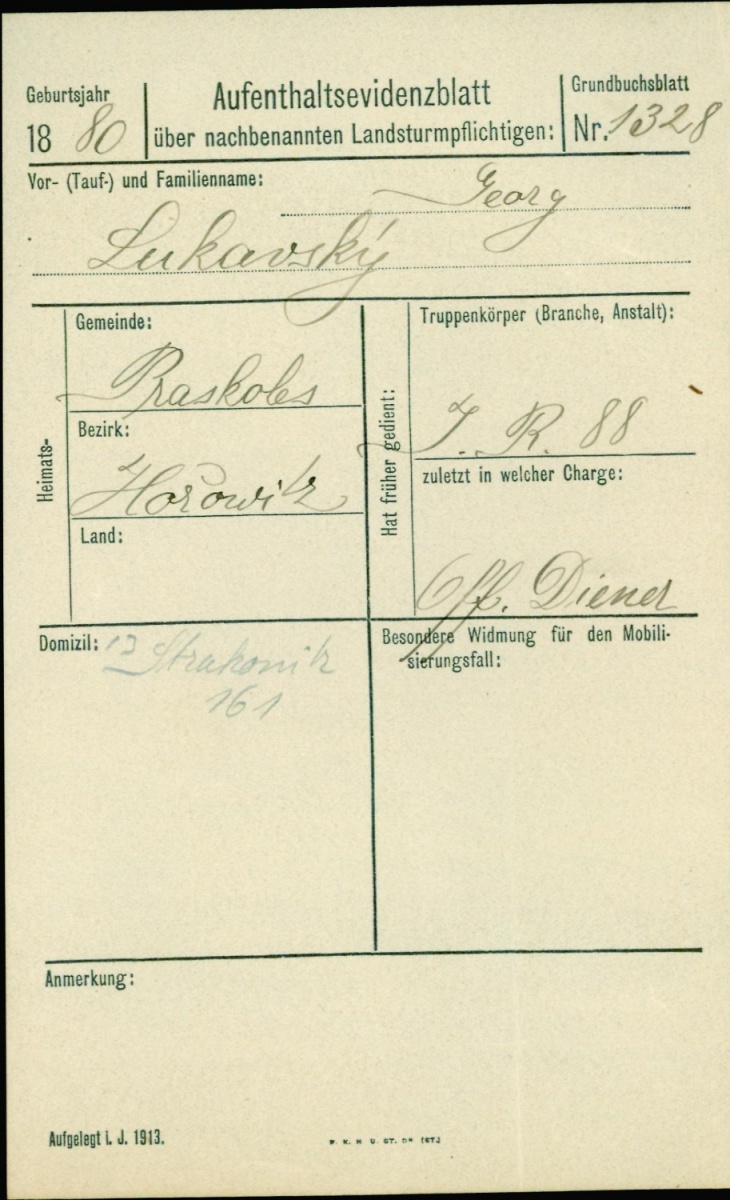 Geburtsjahr
1880
Aufenthaltsevidenzblatt
über nachbenannten Landsturmpflichtigen:
Grundbuchsblatt
Nr. 1328
Vor- (Tauf-) und Familienname:
Georg
Lukavský
Heimats-
Gemeinde:
Praskoles
Bezirk:
Hořowitz
Land:
Hat früher gedient:
Truppenkörper (Branche, Anstalt):
I. R. 88
zuletzt in welcher Charge:
Off. Diener
Domizil: 13 Strakonitz
161
Besondere Widmung für den Mobili-
sierungsfall:
Anmerkung:
Aufgelegt i. J. 1913.